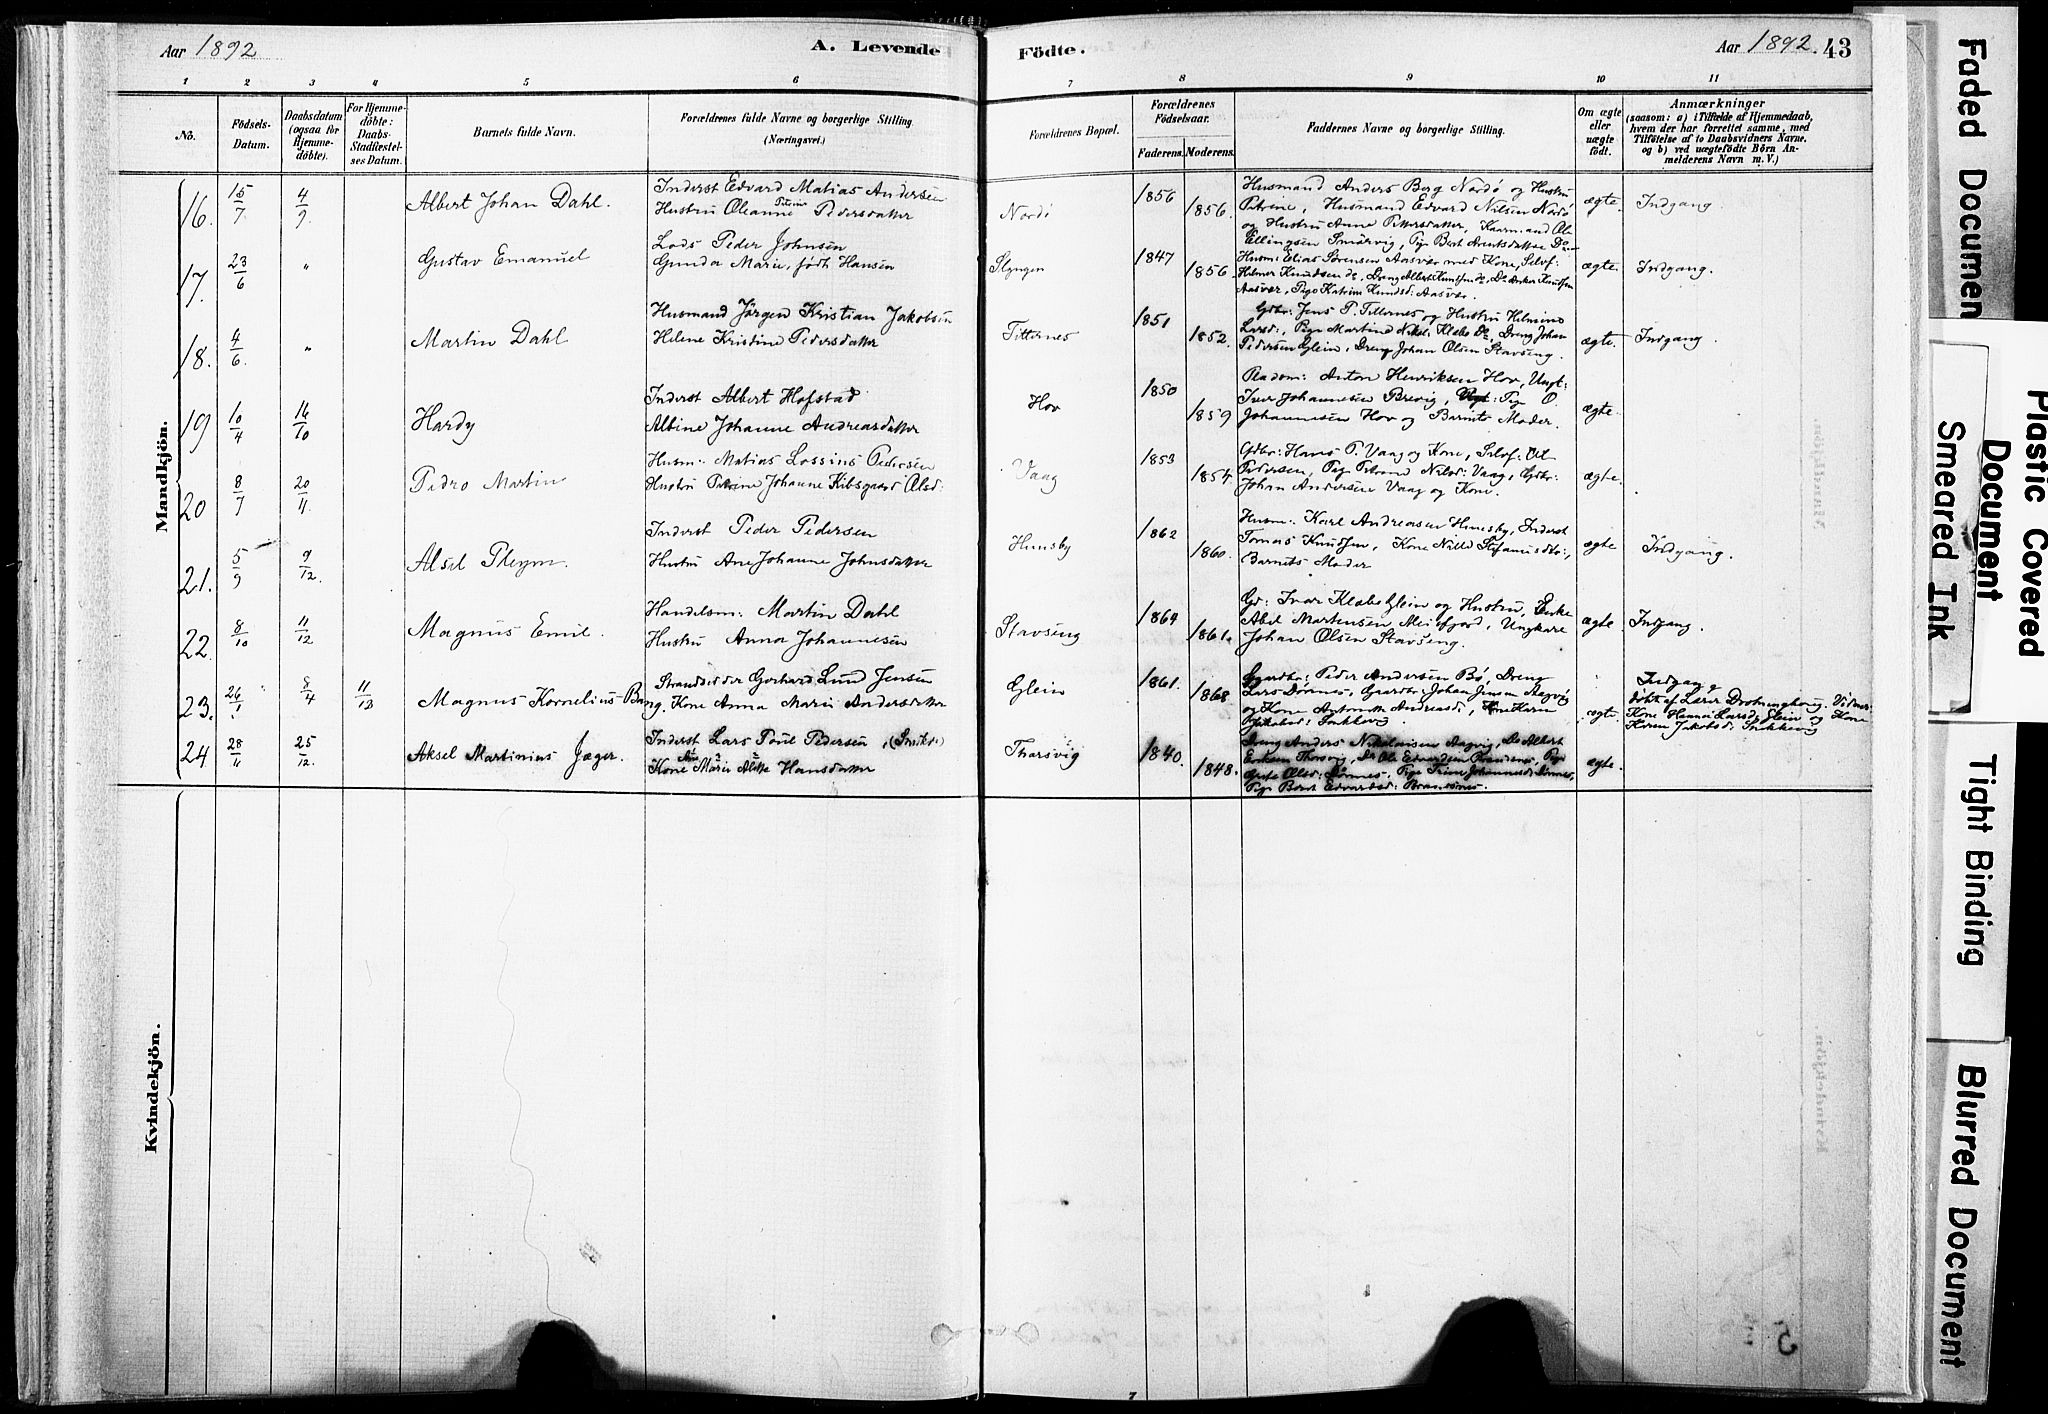 Aar 1892 A. Levende Födte. Aar 1892. 43
1 2 3 4 5 6 7 8 9 10 11
No. Födsels-Datum. Daabsdatum (ogsaa for Hjemme-döbte). For Hjemme-döbte: Daabs-Stadfæstel-ses Datum. Barnets fulde Navn. Forældrenes fulde Navne og borgerlige Stilling. (Næringsvei.) Forældrenes Bopæl. Forældrenes Födselsaar. Faderens. Moderens. Faddernes Navne og borgerlige Stilling. Om ægte eller uægte födt. Anmærkninger (saasom: a) i Tilfælde af Hjemmedaab, hvem der har forrettet samme, med Tilföielse af to Daabsvidners Navne. og b) ved uægtefödte Börn An-melderens Navn m. V.)
Mandkjön.
16. 15/7 4/9 Albert Johan Dahl. Inderst Edvard Matias Andersen
Hustru Oleanne Petrine Pedersdatter Nordö 1856 1856. Husmand Anders Berg Nordö og Hustru
Petrine, Husmand Edvard Nilsen Nordö
og Hustru Anne Pettersdatter, Kaarmand Ole
Ellingsen Smörvig, Pige Berit Arentsdatter Do ægte. Indgang.
17. 23/6 " Gustav Emanuel Lods Peder Johnsen
Gunda Marie, født Hansen Slyngen 1847 1856. Husm: Elias Sörensen Aasvær med Kone, Selvf:
Helmer Knudsen do, Dreng Albert Knudsen do, Do Anker Knudsen
Aasvær, Pige Katrine Knudsd: Aasvær. ægte. Indgang.
18. 4/6 " Martin Dahl Husmand Jörgen Kristian Jakobsen
Helene Kristine Pedersdatter Titternes 1851 1852. Gdbr: Jens P. Titternes og Hustru Helmine
Larsd:, Pige Martine Nikol: Klæbo Do, Dreng Johan
Pedersen Glein, Dreng Johan Olsen Stavseng. ægte. Indgang.
19 10/4 16/10 Hardy Inderst Albert Hofstad
Albine Johanne Andreasdatter Hov 1850 1859 Pladsm: Anton Henriksen Hov, Ungk:
Iver Johannesen Brevig, Pige O.
Johannesen Hov og Barnets Moder. ægte.
20 8/7 20/11. Pedro Martin Husm: Matias Lossius Pedersen
Hustru Petrine Johanne Kibsgaard Olsd: Vaag 1853 1854 Gdbr: Hans P. Vaag og Kone, Selvf: Ole
Pedersen, Pige Petrine Nilsd: Vaag, Gdbr:
Johan Andersen Vaag og Kone. ægte.
21. 5/9 9/12. Inderst Peder Pedersen
Hustru Ane Johanne Johnsdatter Hunsby 1862 1860. Husm: Karl Andreasen Hunsby, Inderst
Tomas Knudsen, Kone Nille Stefanusdtr:,
Barnets Moder ægte Indgang.
22. 8/10 11/12 Magnus Emil. Handelsm: Martin Dahl
Hustru Anna Johannesen Stavseng 1864 1861. Gd: Ivar Klæbo Glein og Hustru, Enke
Abel Martensen Meisfjord, Ungkarl
Johan Olsen Stavseng. ægte. Indgang.
23. 26/1 8/4 11/13 Magnus Kornelius Bang. Strandsidder Gerhard Lund Jensen
Kone Anna Marie Andersdatter Glein 1861. 1868 Gaardbr: Peder Andersen Bö, Dreng
Lars Dönnes, Gaardbr: Johan Jensen Aagvig
og Kone Antonette Andreasd:, Kone Karen
Jakobsd: Snekkevig. ægte. Indgang
döbt af Lærer Dronningborg. Vidner:
Kone Hanna Larsd: Glein og Kone
Karen Jakobsd: Snekkevig
24 28/11 25/12. Aksel Martinius Jæger. Inderst Lars Poul Pedersen,
Kone Ane Marie Aletta Hansdatter Tharsvig 1840. 1848. Dreng Anders Nikolaisen Aagvig, Do Albert
Eriksen Thorsvig, Do Ole Edvardsen Brandsnes, Pige
Olsd: Dönnes, Pige Trine Johannesd: Dönnes,
Pige Berit Edvardsd: Brandsnes. ægte.
Kvindekjön.
7
Faded Document
Plastic Covered Document
Smeared Ink
Tight Binding
Blurred Document